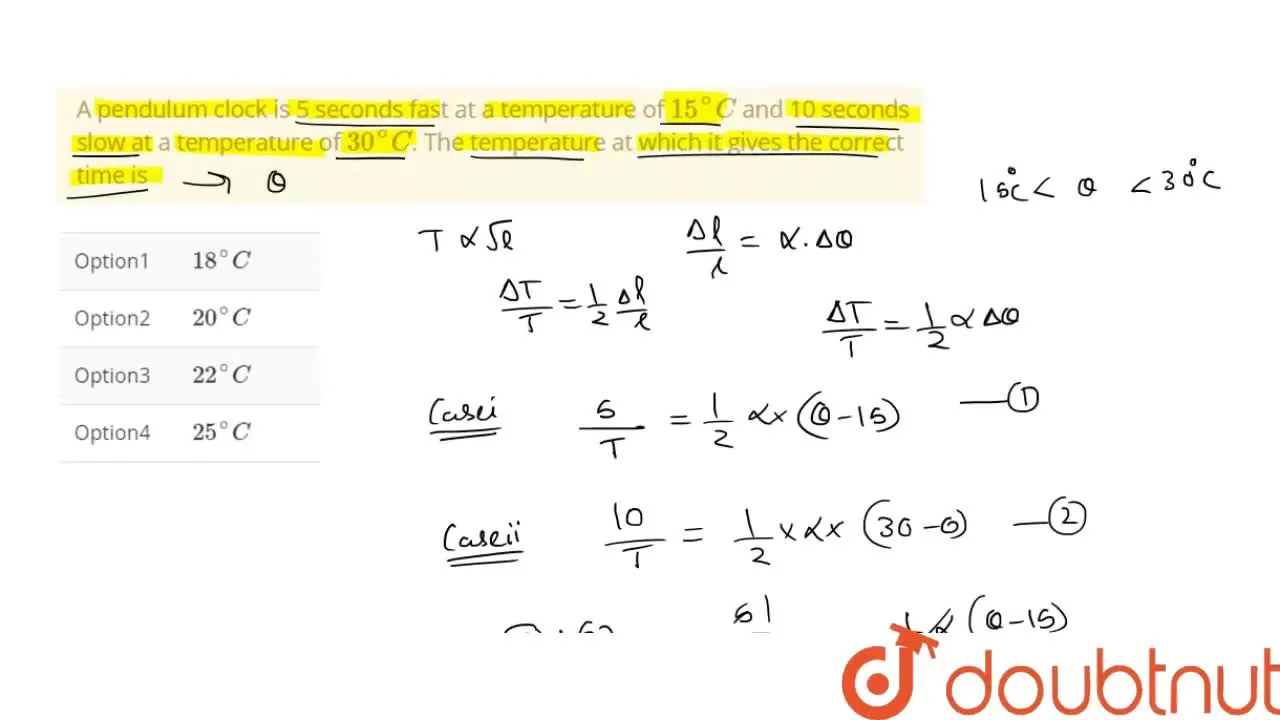 A pendulum clock is 5 seconds fast at a temperature of 15°C and 10 seconds
slow at a temperature of 30°C. The temperature at which it gives the correct
time is → θ
15°C < θ < 30°C
T ∝ √l
Δl/l = α.Δθ
Option1 18°C
Option2 20°C
Option3 22°C
Option4 25°C
ΔT/T = 1/2 Δl/l
ΔT/T = 1/2 αΔθ
Case i 5/T = 1/2 α× (θ-15) —①
Case ii 10/T = 1/2 × α× (30-θ) —②
5 1/2 α (θ-15)
doubtnut